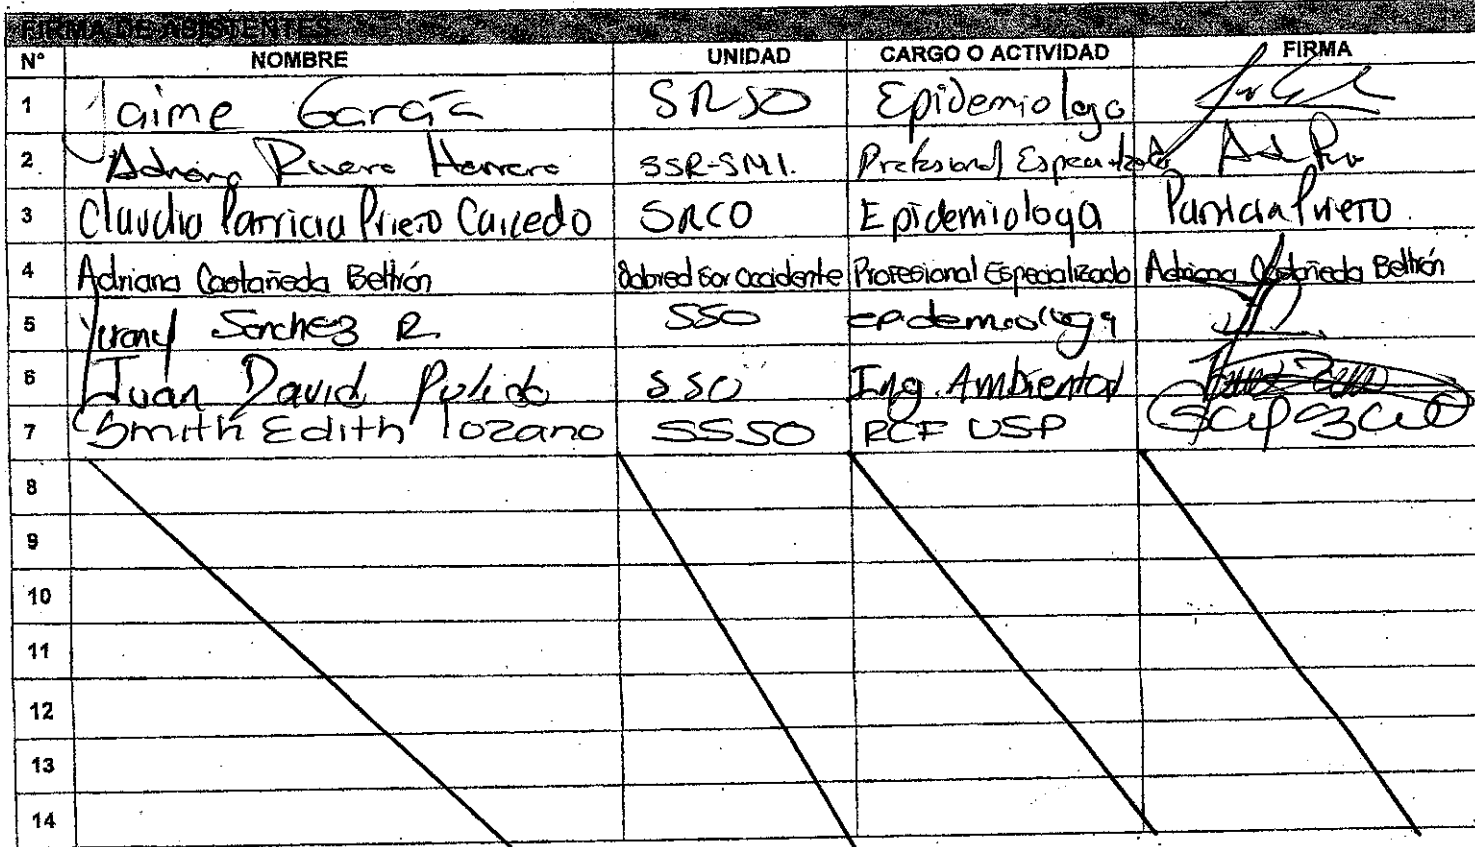 FIRMA DE ASISTENTES
N° NOMBRE UNIDAD CARGO O ACTIVIDAD FIRMA
1 Jaime García SRSO Epidemiologo
2 Adriana Rivera Herrera SSR-SMI. Profesional Especializado
3 Claudia Patricia Prieto Caicedo SRCO Epidemiologa Patricia Prieto
4 Adriana Castañeda Beltrán Subred Sur Occidente Profesional Especializado Adriana Castañeda Beltrán
5 Sanchez R. SSO epidemiologa
6 Juan David Pulido SSO Ing. Ambiental
7 Smith Edith lozano SSSO PCF USP
8
9
10
11
12
13
14